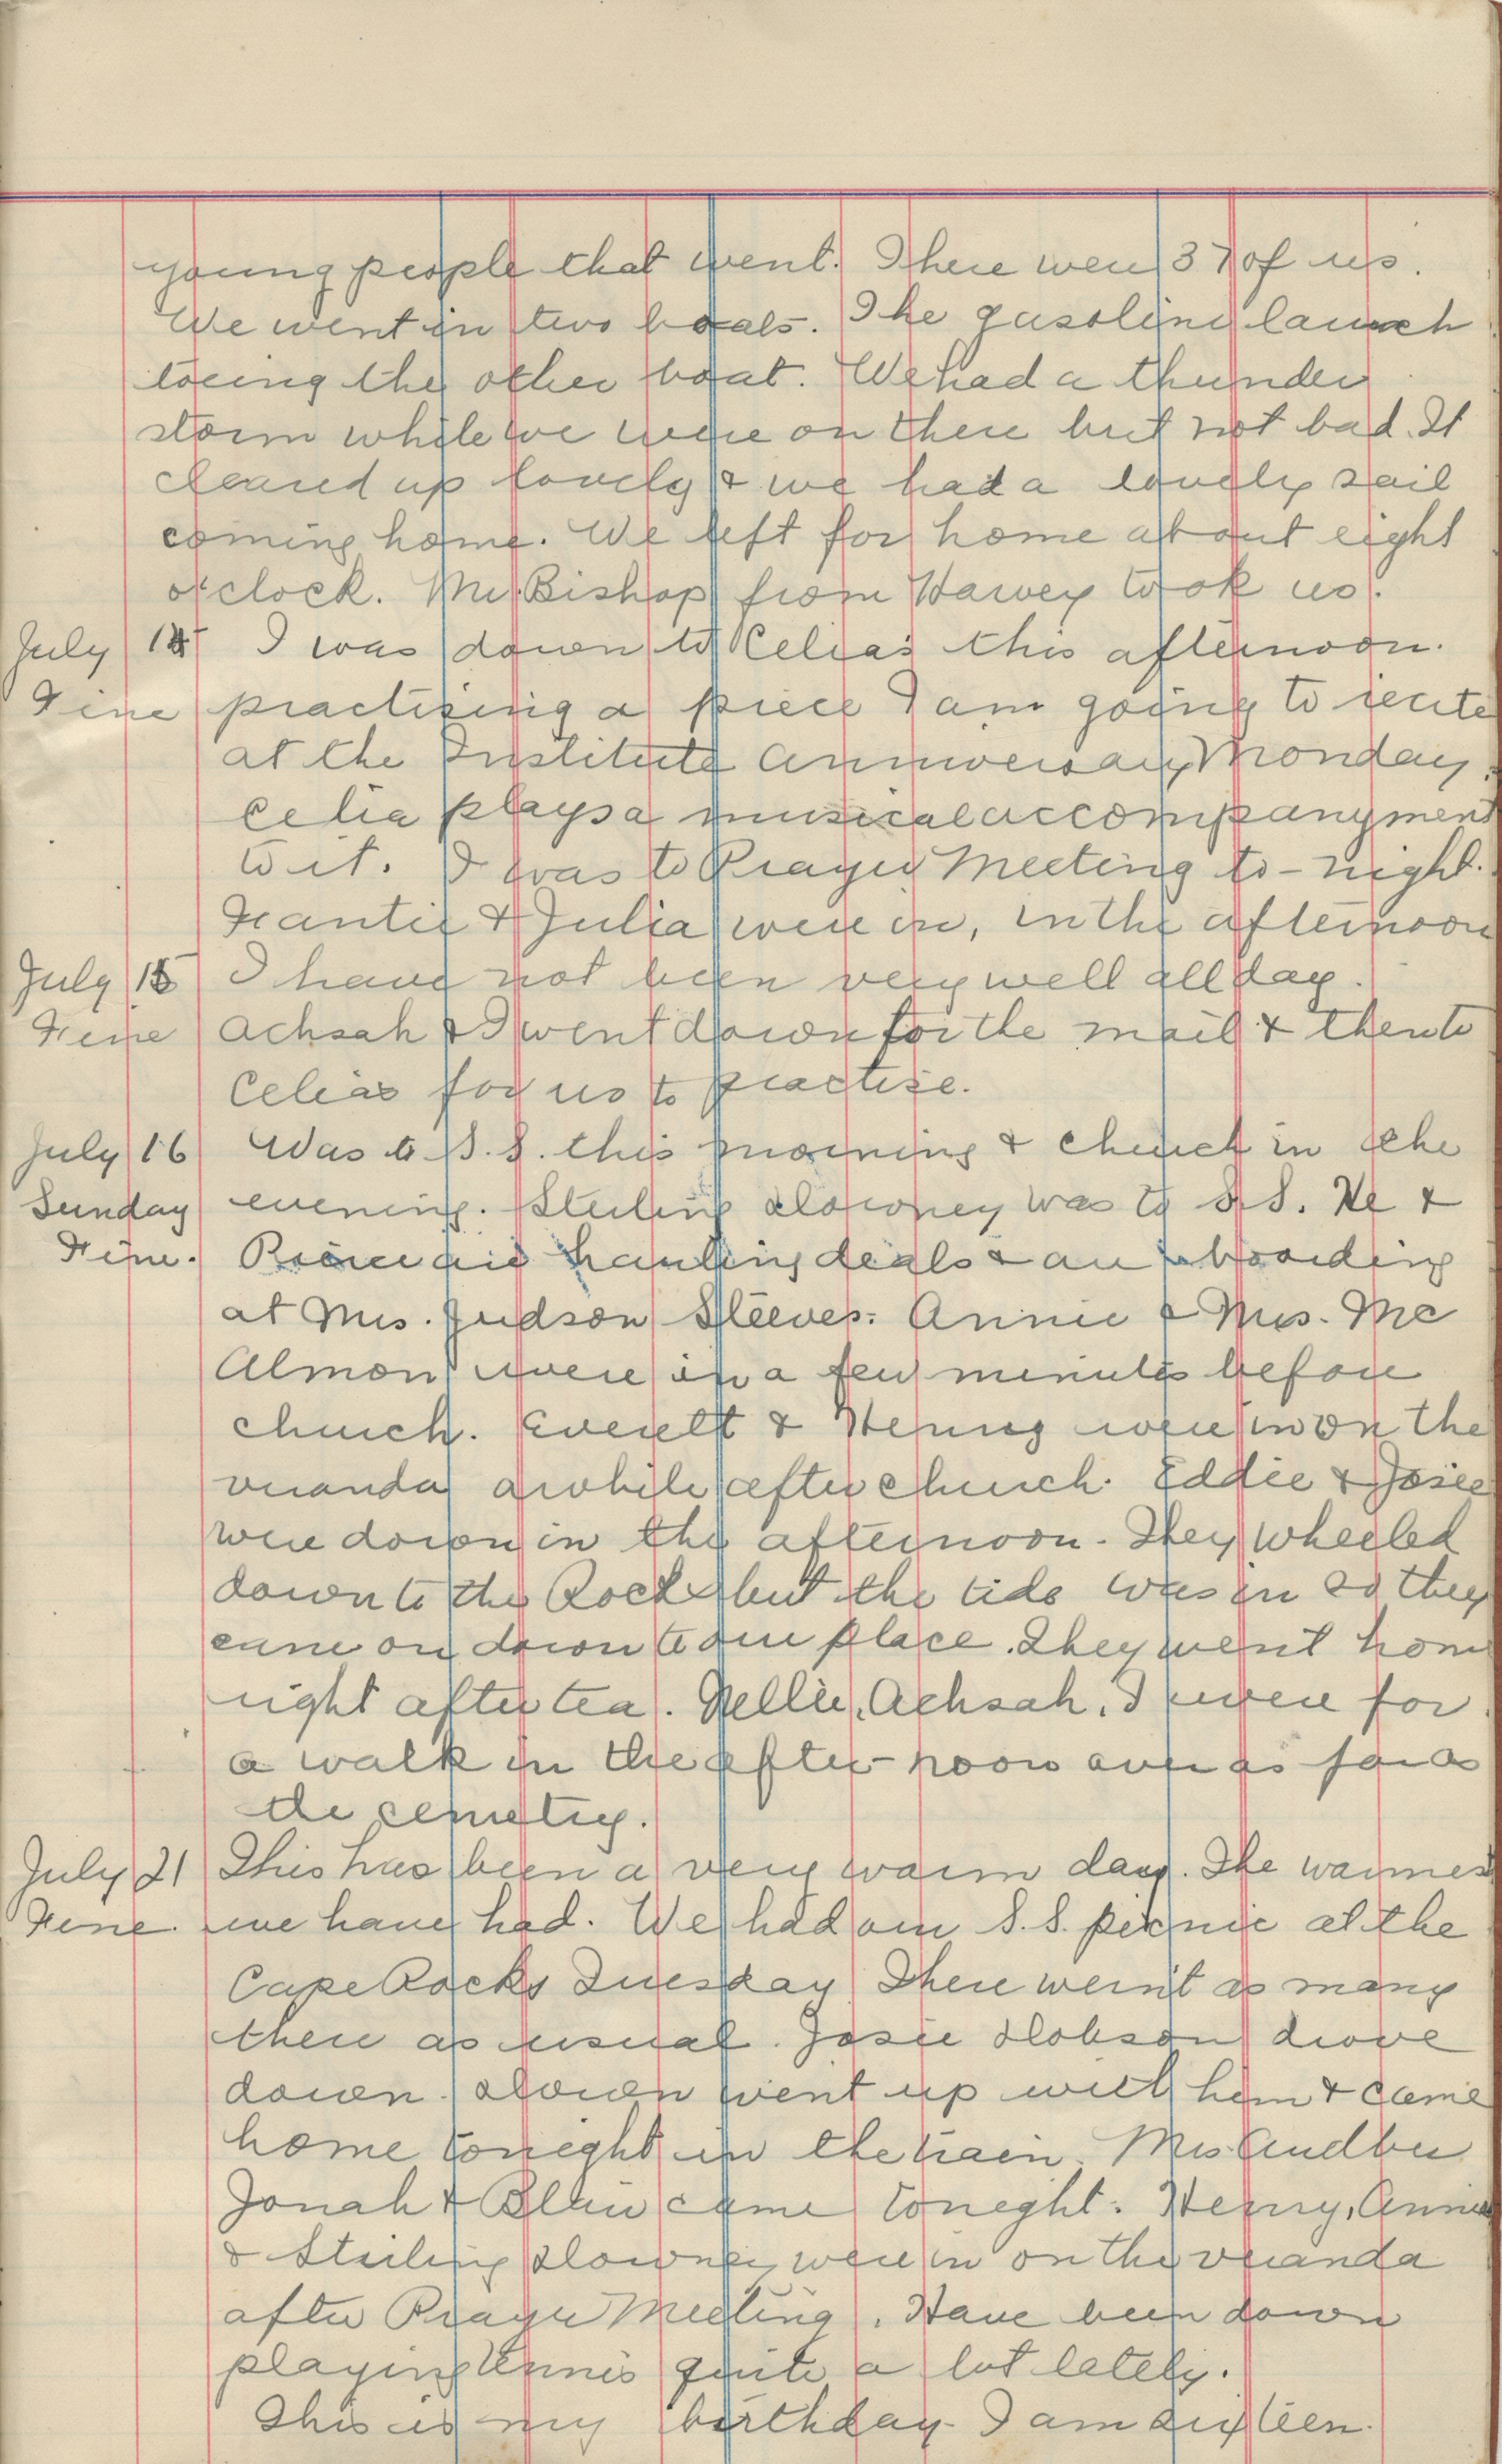 young people that went. There were 37 of us.
We went in two boats. The gasoline launch
towing the other boat. We had a thunder
storm while we were on there but not bad. It
cleared up lovely & we had a lovely sail
coming home. We left for home about eight
o'clock. Mr. Bishop from Harvey took us.
July 14 I was down to Celia's this afternoon.
Fine practising a piece I am going to recite
at the Institute anniversary Monday.
Celia plays a musical accompanyment
to it. I was to Prayer Meeting to-night.
& Julia were in, in the afternoon
July 15 I have not been very well all day.
Fine Achsah & I went down for the mail & then to
Celias for us to practise.
July 16 Was to S.S. this morning & church in the
Sunday evening. Sterling Downey was to S.S. He &
Fine. are hauling deals & are boarding
at Mrs. Judson Steeves. Annie & Mrs. Mc
Almon were in a few minutes before
church. Everett & Henry were in on the
veranda awhile after church. Eddie & Josie
were down in the afternoon. They wheeled
down to the Rocks but the tide was in so they
came on down to our place. They went home
right after tea. Nellie, Achsah, I were for
a walk in the after-noon over as far as
the cemetry.
July 21 This has been a very warm day. The warmest
Fine. we have had. We had our S.S. picnic at the
Cape Rocks Tuesday There wern't as many
there as usual. Josie Dobson drove
down. went up with him & came
home tonight in the train. Mrs.
Jonah & Blair came tonight. Henry, Annie
& Sterling Downey were in on the veranda
after Prayer Meeting. Have been down
playing tennis quite a lot lately.
This is my birthday. I am sixteen.